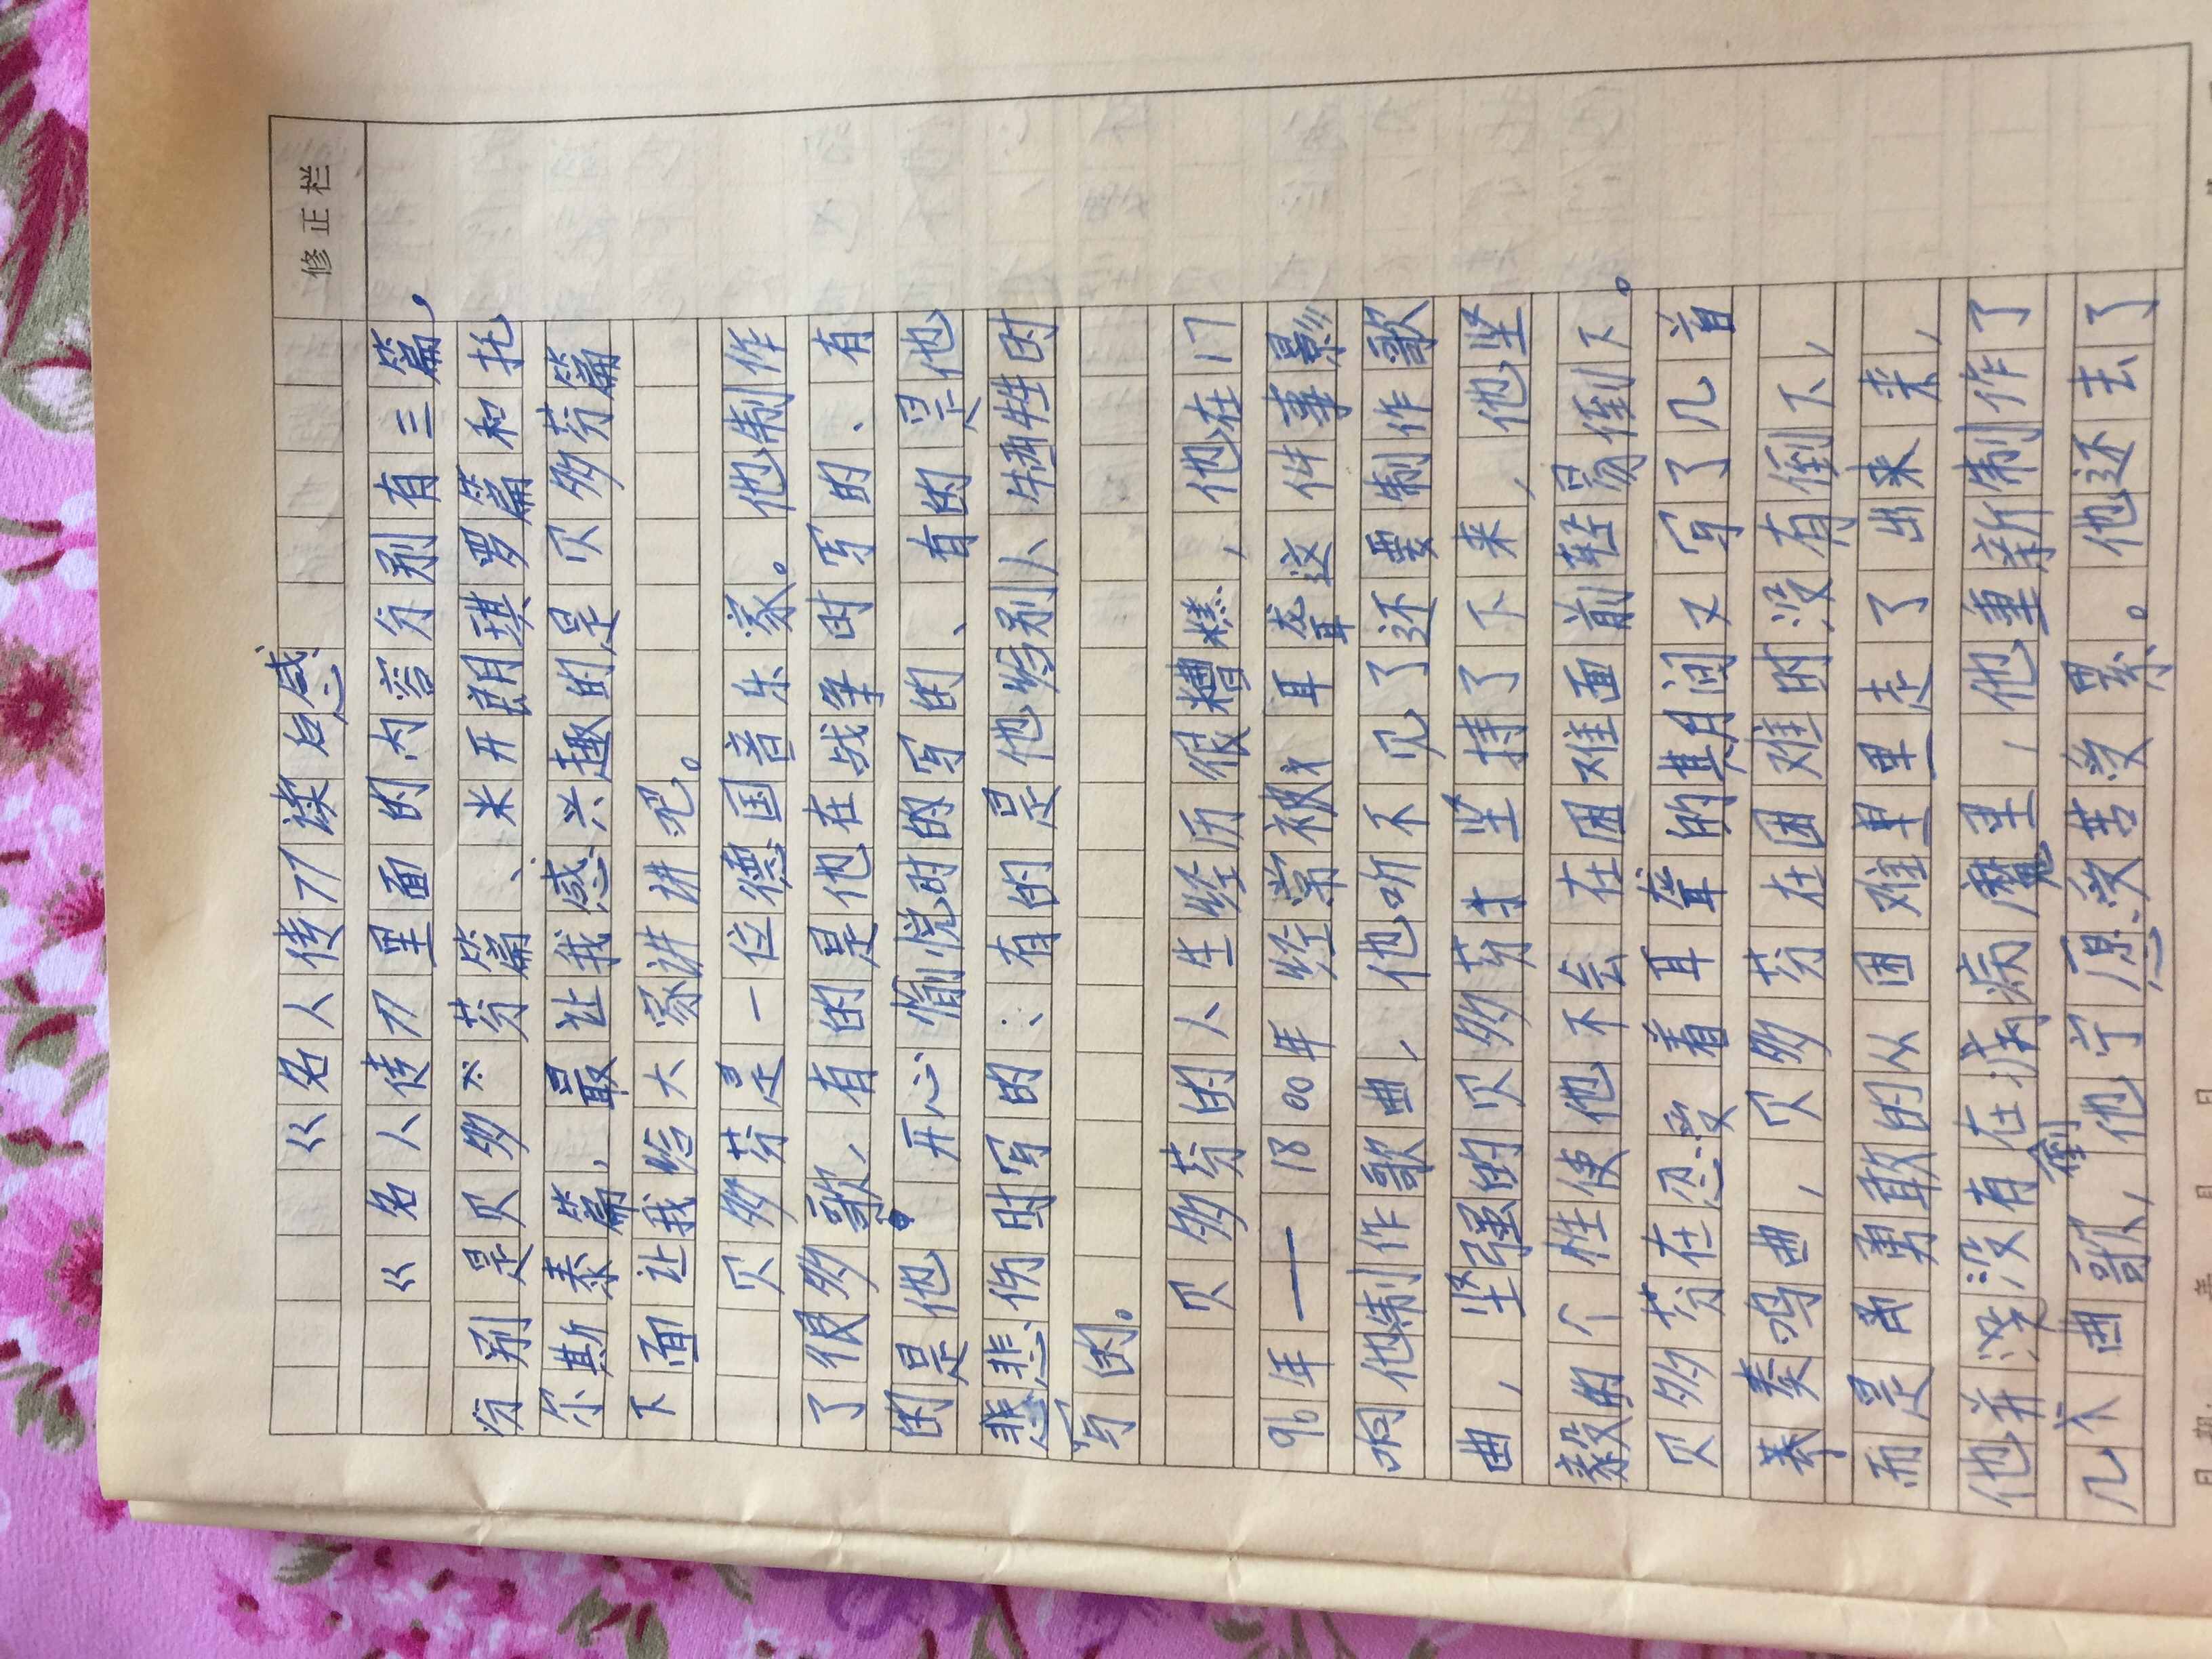 修正栏
《名人传》读后感
《名人传》里面的内容分别有三篇，
分别是贝多芬篇、米开朗琪罗篇和托
尔斯泰篇，最让我感兴趣的是贝多芬篇
下面让我给大家讲讲吧。
贝多芬是一位德国音乐家。他制作
了很多歌，有的是他在战争时写的、有
的是他开心愉悦时的写的、有的是他
悲悲伤时写的、有的是他给别人牺牲时
写的。
贝多芬的人生经历很糟糕，他在17
96年——1800年经常被耳聋这件事影
响他制作歌曲，他听不见了还要制作歌
曲，坚强的贝多芬坚持了下来，他坚
毅的个性使他不会在困难面前轻易倒下。
贝多芬在忍受着耳聋的期间又写了几首
奏鸣曲，贝多芬在困难时没有倒下，
而是勇敢的从困难里走了出来，
他并没有在病魔里，他重新制作了
倒
几不曲歌，他宁愿受苦受累。他还去了